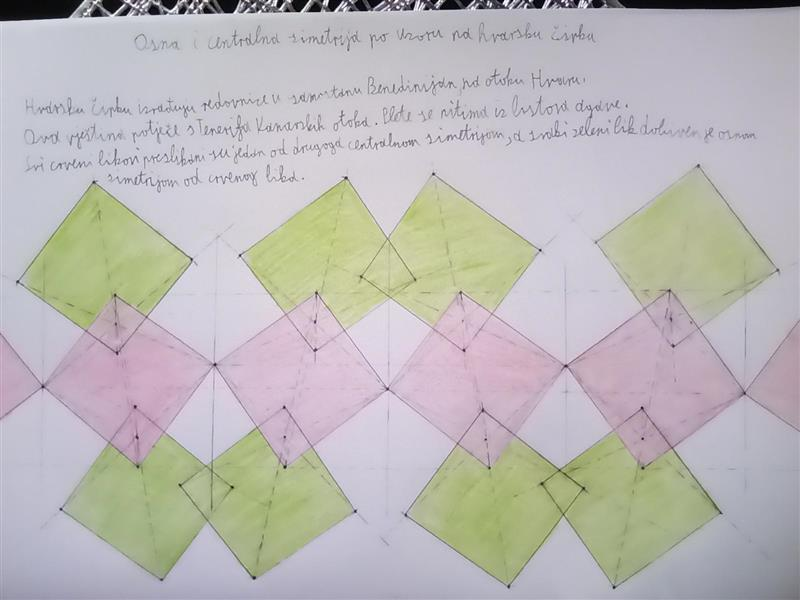 Osna i centralna simetrija po uzoru na hvarsku čipku
Hvarsku čipku izrađuju redovnice u samostanu Benediktinjan, na otoku Hvaru.
Ova vještina potječe s Tenerifa Kanarskih otoka. Plete se nitima iz listova agave.
Svi crveni likovi preslikani su jedan od drugoga centralnom simetrijom, a svaki zeleni lik dobiven je osnom
simetrijom od crvenog lika.